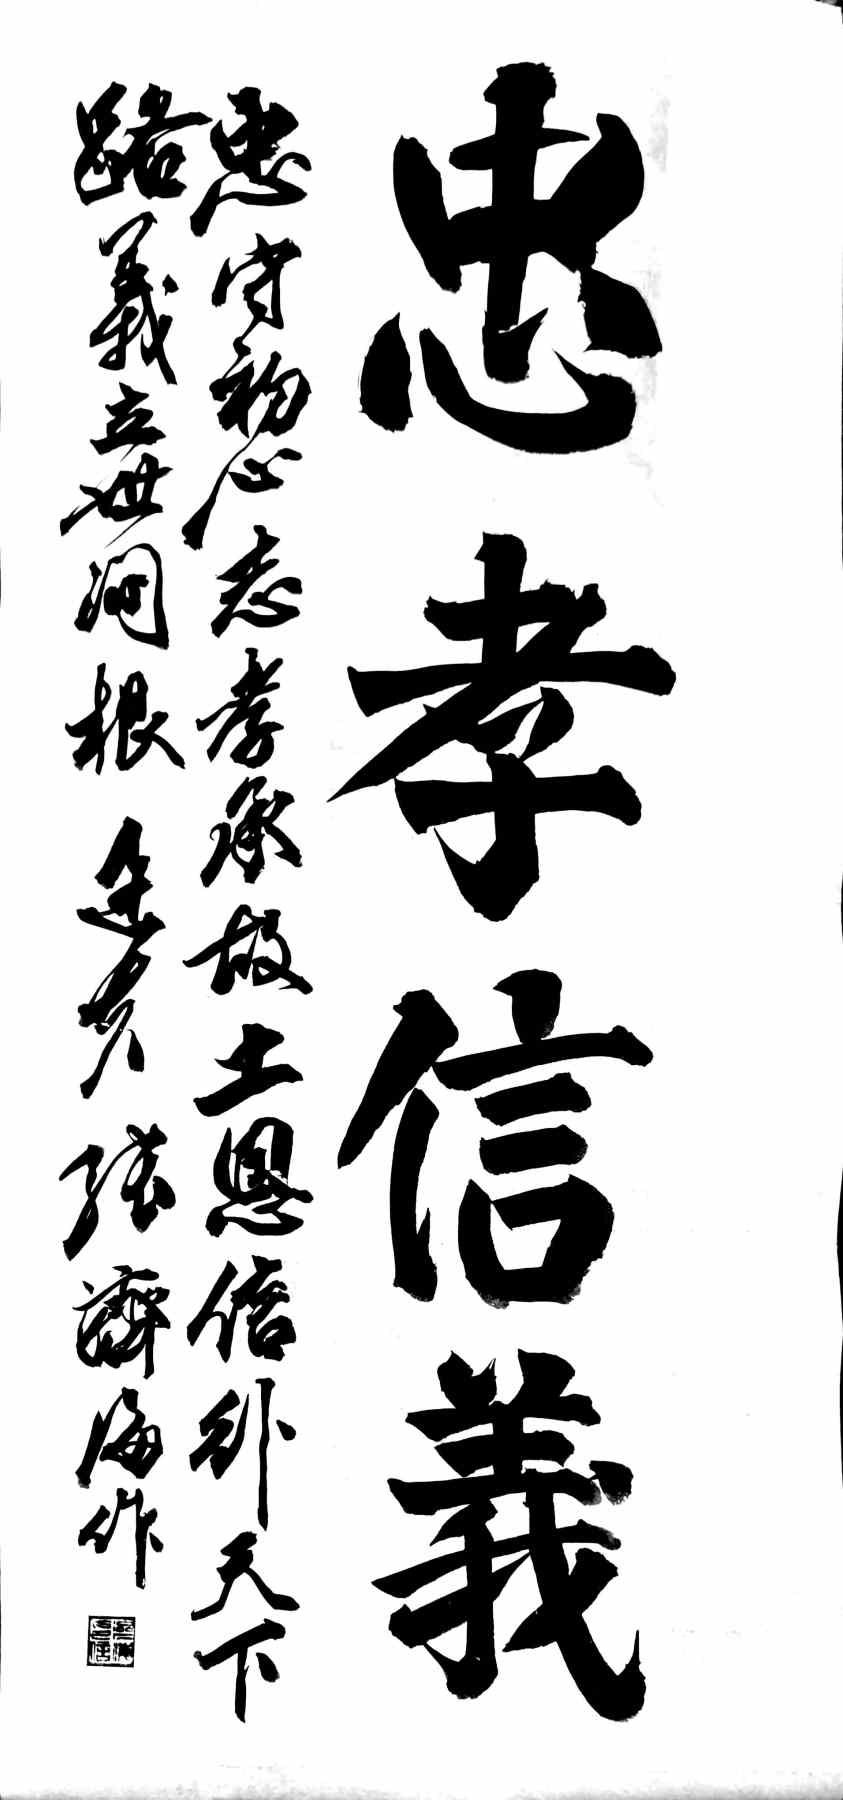 忠孝信義
忠守初心志孝承故土恩信行天下
路義立世间根 張濟海作